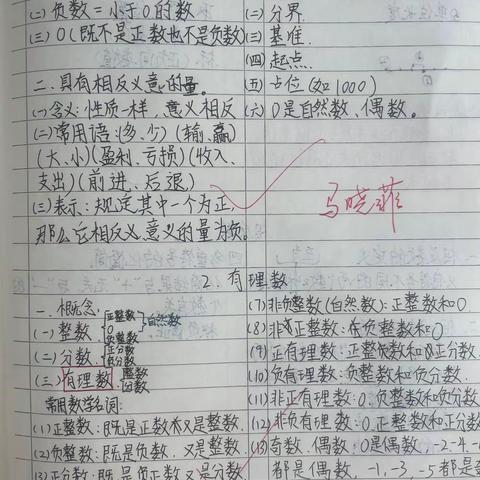 (二)负数=小于0的数
(三)0(既不是正数也不是负数)
二.具有相反义意的量。
(一)含义:性质一样,意义相反
(二)常用语:(多、少)(输、赢)
(大、小)(盈利、亏损)(收入、
支出)(前进、后退)
(三)表示:规定其中一个为正,
那么它相反义意义的量为负。
(二)分界.
(三)基准.
(四)起点.
(五)占位(如1000)
(六)0是自然数、偶数。
马晓菲
2.有理数
一.概念.
(一)整数.正整数 0 负整数 自然数
(二)分数.正分数 负分数
(三)有理数.整数 分数
常用数学名词:
(1)正整数:既是正数又是整数.
(2)负整数:既是负数,又是整数.
(3)正分数:既是正数又是分数.
(7)非负整数(自然数):正整数和0.
(8)非正整数:负整数和0
(9)正有理数:正整数和正分数.
(10)负有理数:负整数和负分数.
(11)非正有理数:0.负整数和负分数
(12)非负有理数:0.正整数和正分数
(13)奇数、偶数:0是偶数,-2.-4.
都是偶数,-1,-3,-5都是